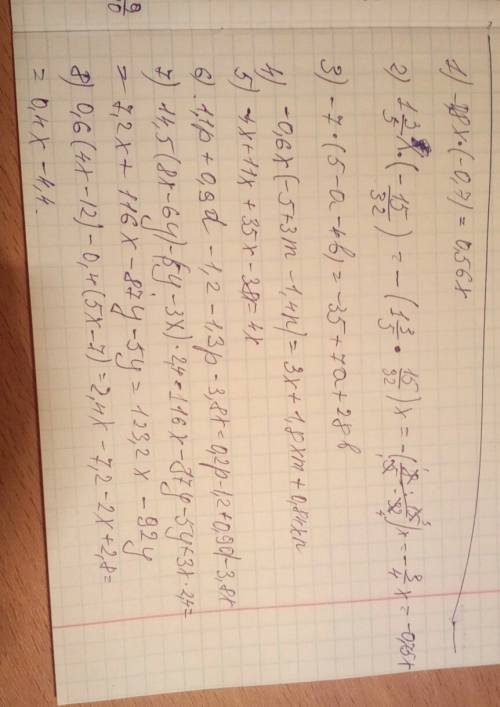 1) -0,8x·(-0,7) = 0,56x
2) 1 3/5 x·(-15/32) = -(1 3/5 · 15/32)x = -3/4 x = -0,75x
3) -7·(5-a-4b) = -35+7a+28b
4) -0,6x(-5+3m-1,4n) = 3x+1,8xm+0,84xn
5) -4x+11x+35x-38=4x
6) 1,1p+0,9d-1,2-1,3p-3,8t=0,2p-1,2+0,9d-3,8t
7) 14,5(8x-6y)-(5y-3x)·2,4=116x-87y-5y+3x·2,4=
= 7,2x+116x-87y-5y=123,2x-92y
8) 0,6(4x-12)-0,4(5x-7)=2,4x-7,2-2x+2,8=
= 0,4x-4,4.